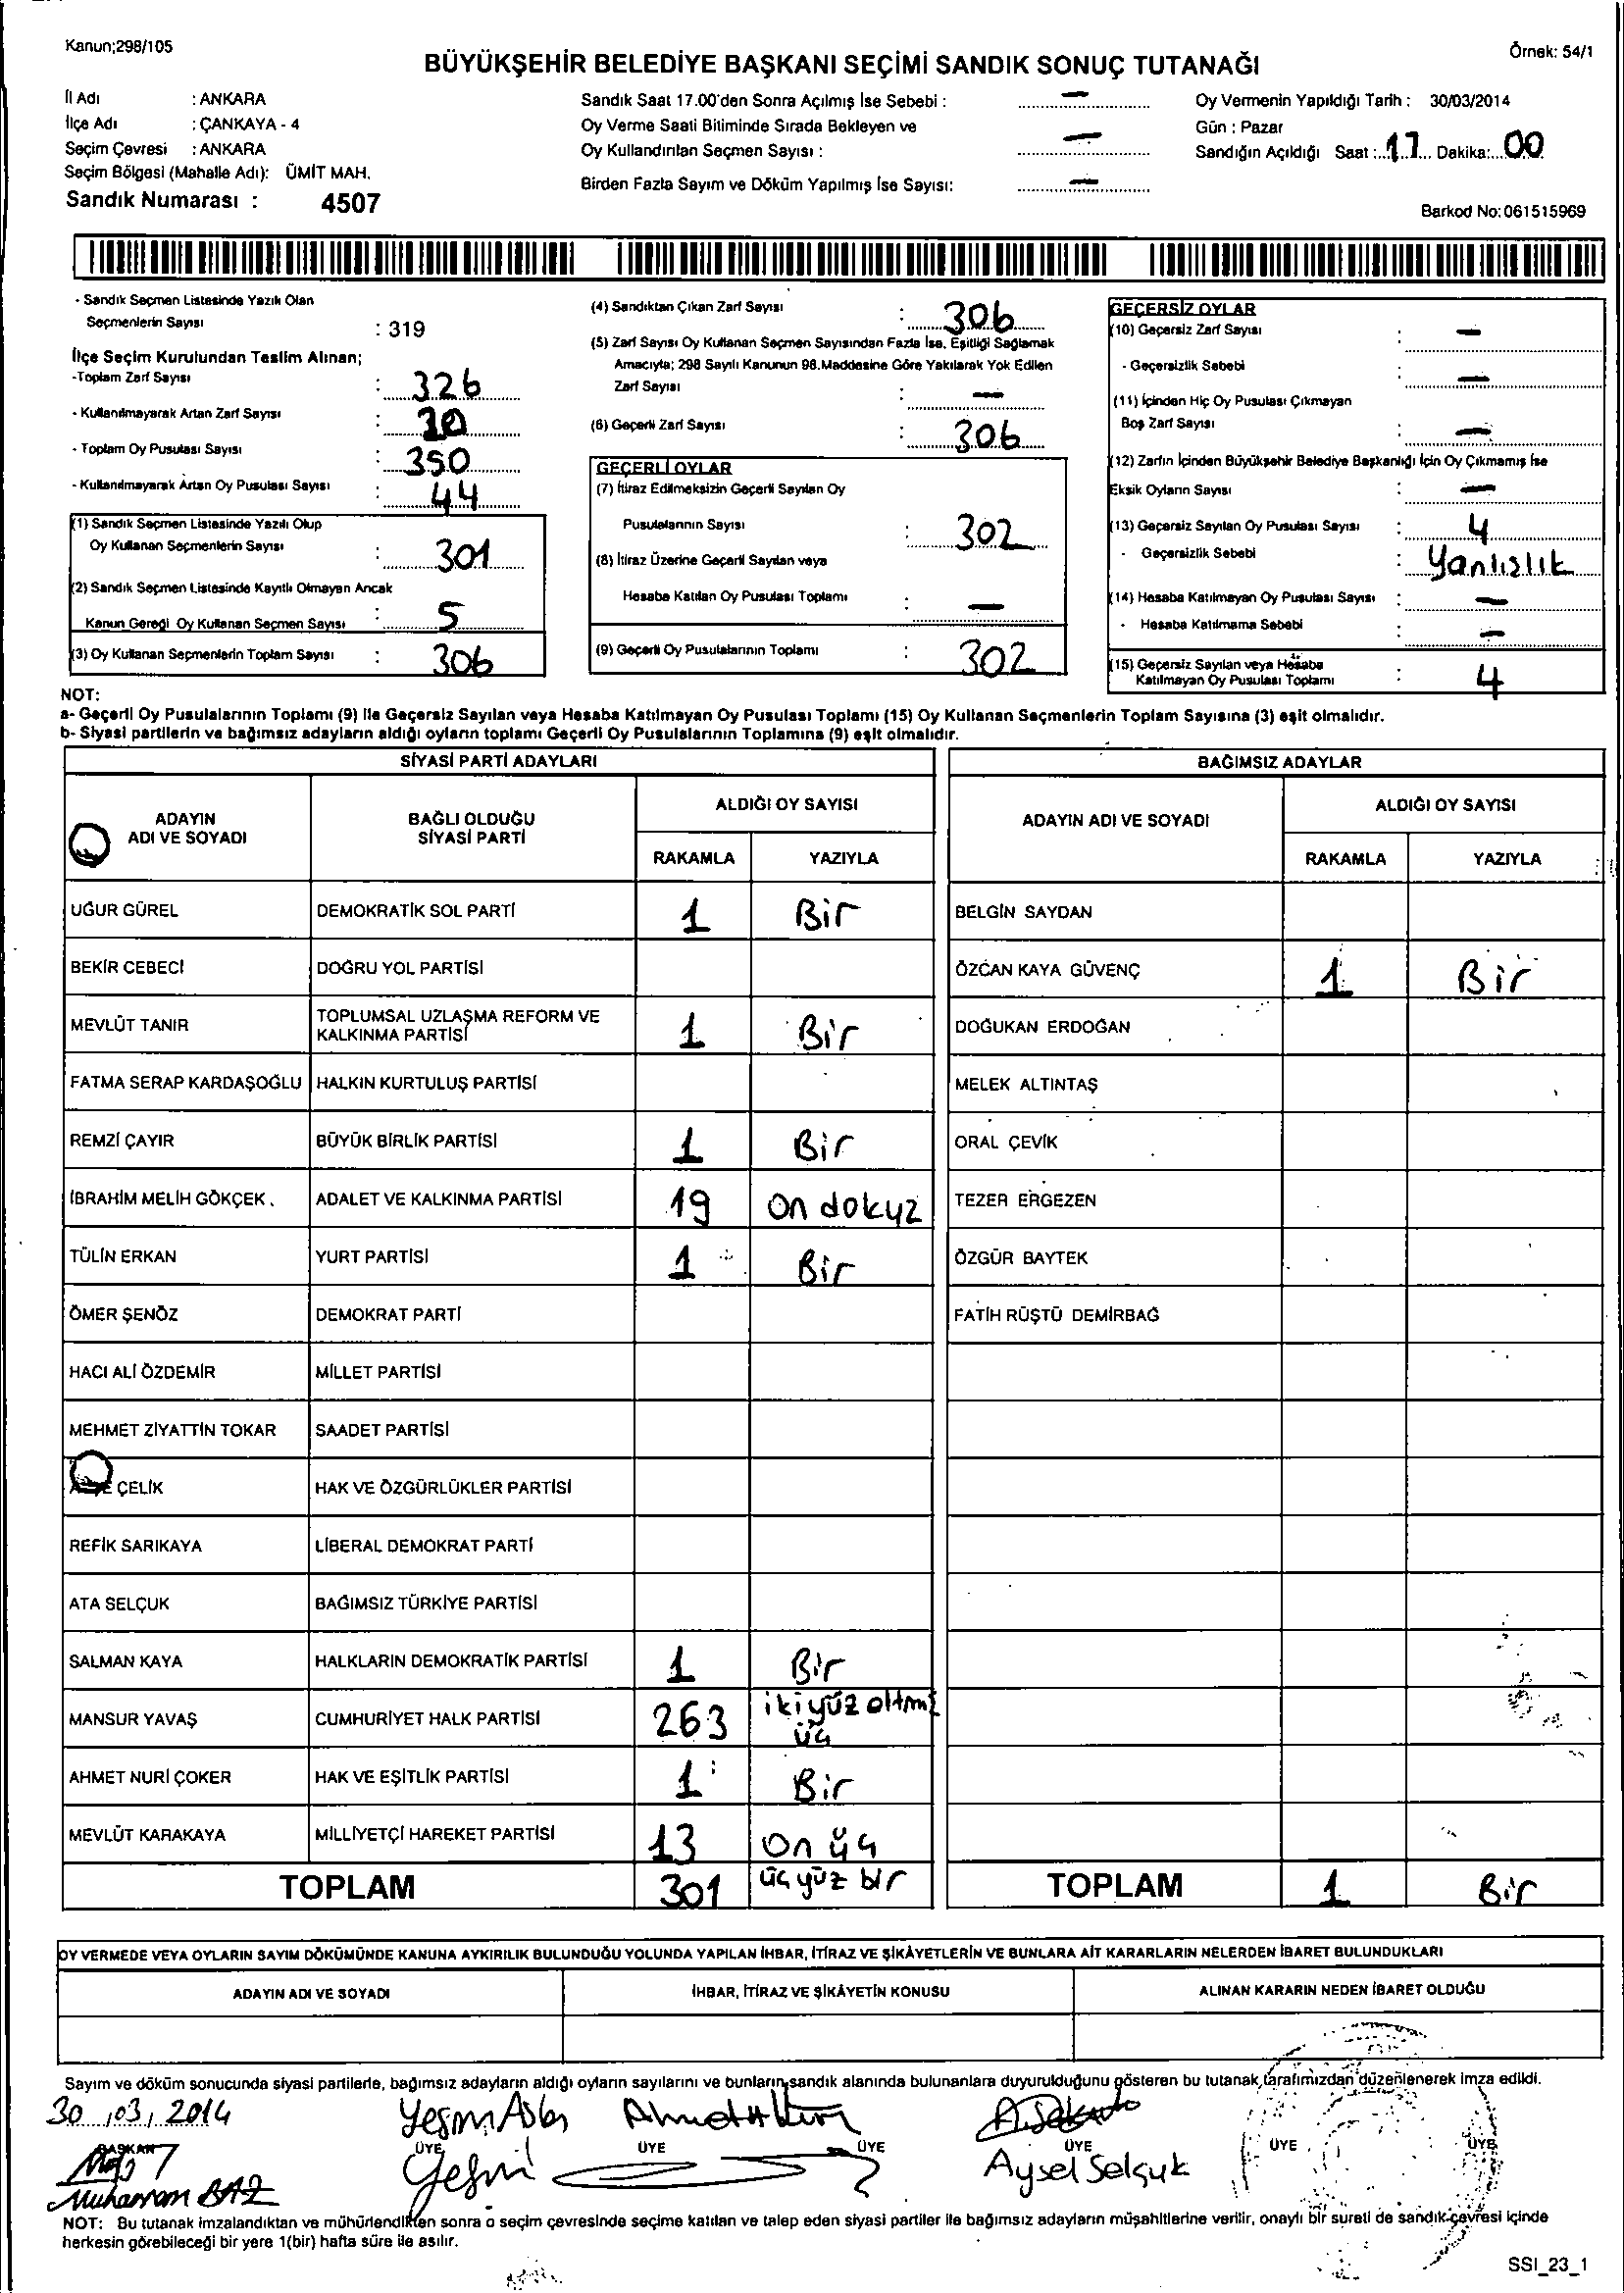 Kanun;298/105
Örnek: 54/1
BÜYÜKŞEHİR BELEDİYE BAŞKANI SEÇİMİ SANDIK SONUÇ TUTANAĞI
İl Adı : ANKARA
İlçe Adı : ÇANKAYA - 4
Seçim Çevresi : ANKARA
Seçim Bölgesi (Mahalle Adı): ÜMİT MAH.
Sandık Numarası : 4507
Sandık Saat 17.00'den Sonra Açılmış İse Sebebi : —
Oy Verme Saati Bitiminde Sırada Bekleyen ve
Oy Kullandırılan Seçmen Sayısı : —
Birden Fazla Sayım ve Döküm Yapılmış İse Sayısı: —
Oy Vermenin Yapıldığı Tarih : 30/03/2014
Gün : Pazar
Sandığın Açıldığı Saat :..17... Dakika:...00.
Barkod No:061515969
- Sandık Seçmen Listesinde Yazılı Olan
Seçmenlerin Sayısı : 319
İlçe Seçim Kurulundan Teslim Alınan;
-Toplam Zarf Sayısı : 326
- Kullanılmayarak Artan Zarf Sayısı : 20
- Toplam Oy Pusulası Sayısı : 350
- Kullanılmayarak Artan Oy Pusulası Sayısı : 44
(1) Sandık Seçmen Listesinde Yazılı Olup
Oy Kullanan Seçmenlerin Sayısı : 301
(2) Sandık Seçmen Listesinde Kayıtlı Olmayan Ancak
Kanun Gereği Oy Kullanan Seçmen Sayısı : 5
(3) Oy Kullanan Seçmenlerin Toplam Sayısı : 306
(4) Sandıktan Çıkan Zarf Sayısı : 306
(5) Zarf Sayısı Oy Kullanan Seçmen Sayısından Fazla İse, Eşitliği Sağlamak
Amacıyla; 298 Sayılı Kanunun 98.Maddesine Göre Yakılarak Yok Edilen
Zarf Sayısı : —
(6) Geçerli Zarf Sayısı : 306
GEÇERLİ OYLAR
(7) İtiraz Edilmeksizin Geçerli Sayılan Oy
Pusulalarının Sayısı : 302
(8) İtiraz Üzerine Geçerli Sayılan veya
Hesaba Katılan Oy Pusulası Toplamı : —
(9) Geçerli Oy Pusulalarının Toplamı : 302
GEÇERSİZ OYLAR
(10) Geçersiz Zarf Sayısı : —
- Geçersizlik Sebebi : —
(11) İçinden Hiç Oy Pusulası Çıkmayan
Boş Zarf Sayısı : —
(12) Zarfın İçinden Büyükşehir Belediye Başkanlığı İçin Oy Çıkmamış İse
Eksik Oyların Sayısı : —
(13) Geçersiz Sayılan Oy Pusulası Sayısı : 4
- Geçersizlik Sebebi : Yanlışlık
(14) Hesaba Katılmayan Oy Pusulası Sayısı : —
- Hesaba Katılmama Sebebi : —
(15) Geçersiz Sayılan veya Hesaba
Katılmayan Oy Pusulası Toplamı : 4
NOT:
a- Geçerli Oy Pusulalarının Toplamı (9) ile Geçersiz Sayılan veya Hesaba Katılmayan Oy Pusulası Toplamı (15) Oy Kullanan Seçmenlerin Toplam Sayısına (3) eşit olmalıdır.
b- Siyasi partilerin ve bağımsız adayların aldığı oyların toplamı Geçerli Oy Pusulalarının Toplamına (9) eşit olmalıdır.
SİYASİ PARTİ ADAYLARI
ADAYIN ADI VE SOYADI
BAĞLI OLDUĞU SİYASİ PARTİ
ALDIĞI OY SAYISI
RAKAMLA YAZIYLA
UĞUR GÜREL DEMOKRATİK SOL PARTİ 1 Bir
BEKİR CEBECİ DOĞRU YOL PARTİSİ
MEVLÜT TANIR TOPLUMSAL UZLAŞMA REFORM VE KALKINMA PARTİSİ 1 Bir
FATMA SERAP KARDAŞOĞLU HALKIN KURTULUŞ PARTİSİ
REMZİ ÇAYIR BÜYÜK BİRLİK PARTİSİ 1 Bir
İBRAHİM MELİH GÖKÇEK ADALET VE KALKINMA PARTİSİ 19 on dokuz
TÜLİN ERKAN YURT PARTİSİ 1 Bir
ÖMER ŞENÖZ DEMOKRAT PARTİ
HACI ALİ ÖZDEMİR MİLLET PARTİSİ
MEHMET ZİYATTİN TOKAR SAADET PARTİSİ
ÇELİK HAK VE ÖZGÜRLÜKLER PARTİSİ
REFİK SARIKAYA LİBERAL DEMOKRAT PARTİ
ATA SELÇUK BAĞIMSIZ TÜRKİYE PARTİSİ
SALMAN KAYA HALKLARIN DEMOKRATİK PARTİSİ 1 Bir
MANSUR YAVAŞ CUMHURİYET HALK PARTİSİ 263 ikiyüz altmış üç
AHMET NURİ ÇOKER HAK VE EŞİTLİK PARTİSİ 1 Bir
MEVLÜT KARAKAYA MİLLİYETÇİ HAREKET PARTİSİ 13 on üç
TOPLAM 301 üç yüz bir
BAĞIMSIZ ADAYLAR
ADAYIN ADI VE SOYADI
ALDIĞI OY SAYISI
RAKAMLA YAZIYLA
BELGİN SAYDAN
ÖZCAN KAYA GÜVENÇ 1 Bir
DOĞUKAN ERDOĞAN
MELEK ALTINTAŞ
ORAL ÇEVİK
TEZER ERGEZEN
ÖZGÜR BAYTEK
FATİH RÜŞTÜ DEMİRBAĞ
TOPLAM 1 Bir
OY VERMEDE VEYA OYLARIN SAYIM DÖKÜMÜNDE KANUNA AYKIRILIK BULUNDUĞU YOLUNDA YAPILAN İHBAR, İTİRAZ VE ŞİKÂYETLERİN VE BUNLARA AİT KARARLARIN NELERDEN İBARET BULUNDUKLARI
ADAYIN ADI VE SOYADI İHBAR, İTİRAZ VE ŞİKÂYETİN KONUSU ALINAN KARARIN NEDEN İBARET OLDUĞU
Sayım ve döküm sonucunda siyasi partilerle, bağımsız adayların aldığı oyların sayılarını ve bunların sandık alanında bulunanlara duyurulduğunu gösteren bu tutanak tarafımızdan düzenlenerek imza edildi.
30/03/2014
BAŞKAN ÜYE ÜYE ÜYE ÜYE ÜYE ÜYE
Muharrem BAZ Aysel Selçuk
NOT: Bu tutanak imzalandıktan ve mühürlendikten sonra o seçim çevresinde seçime katılan ve talep eden siyasi partiler ile bağımsız adayların müşahitlerine verilir, onaylı bir sureti de sandık çevresi içinde
herkesin görebileceği bir yere 1(bir) hafta süre ile asılır.
SSI_23_1